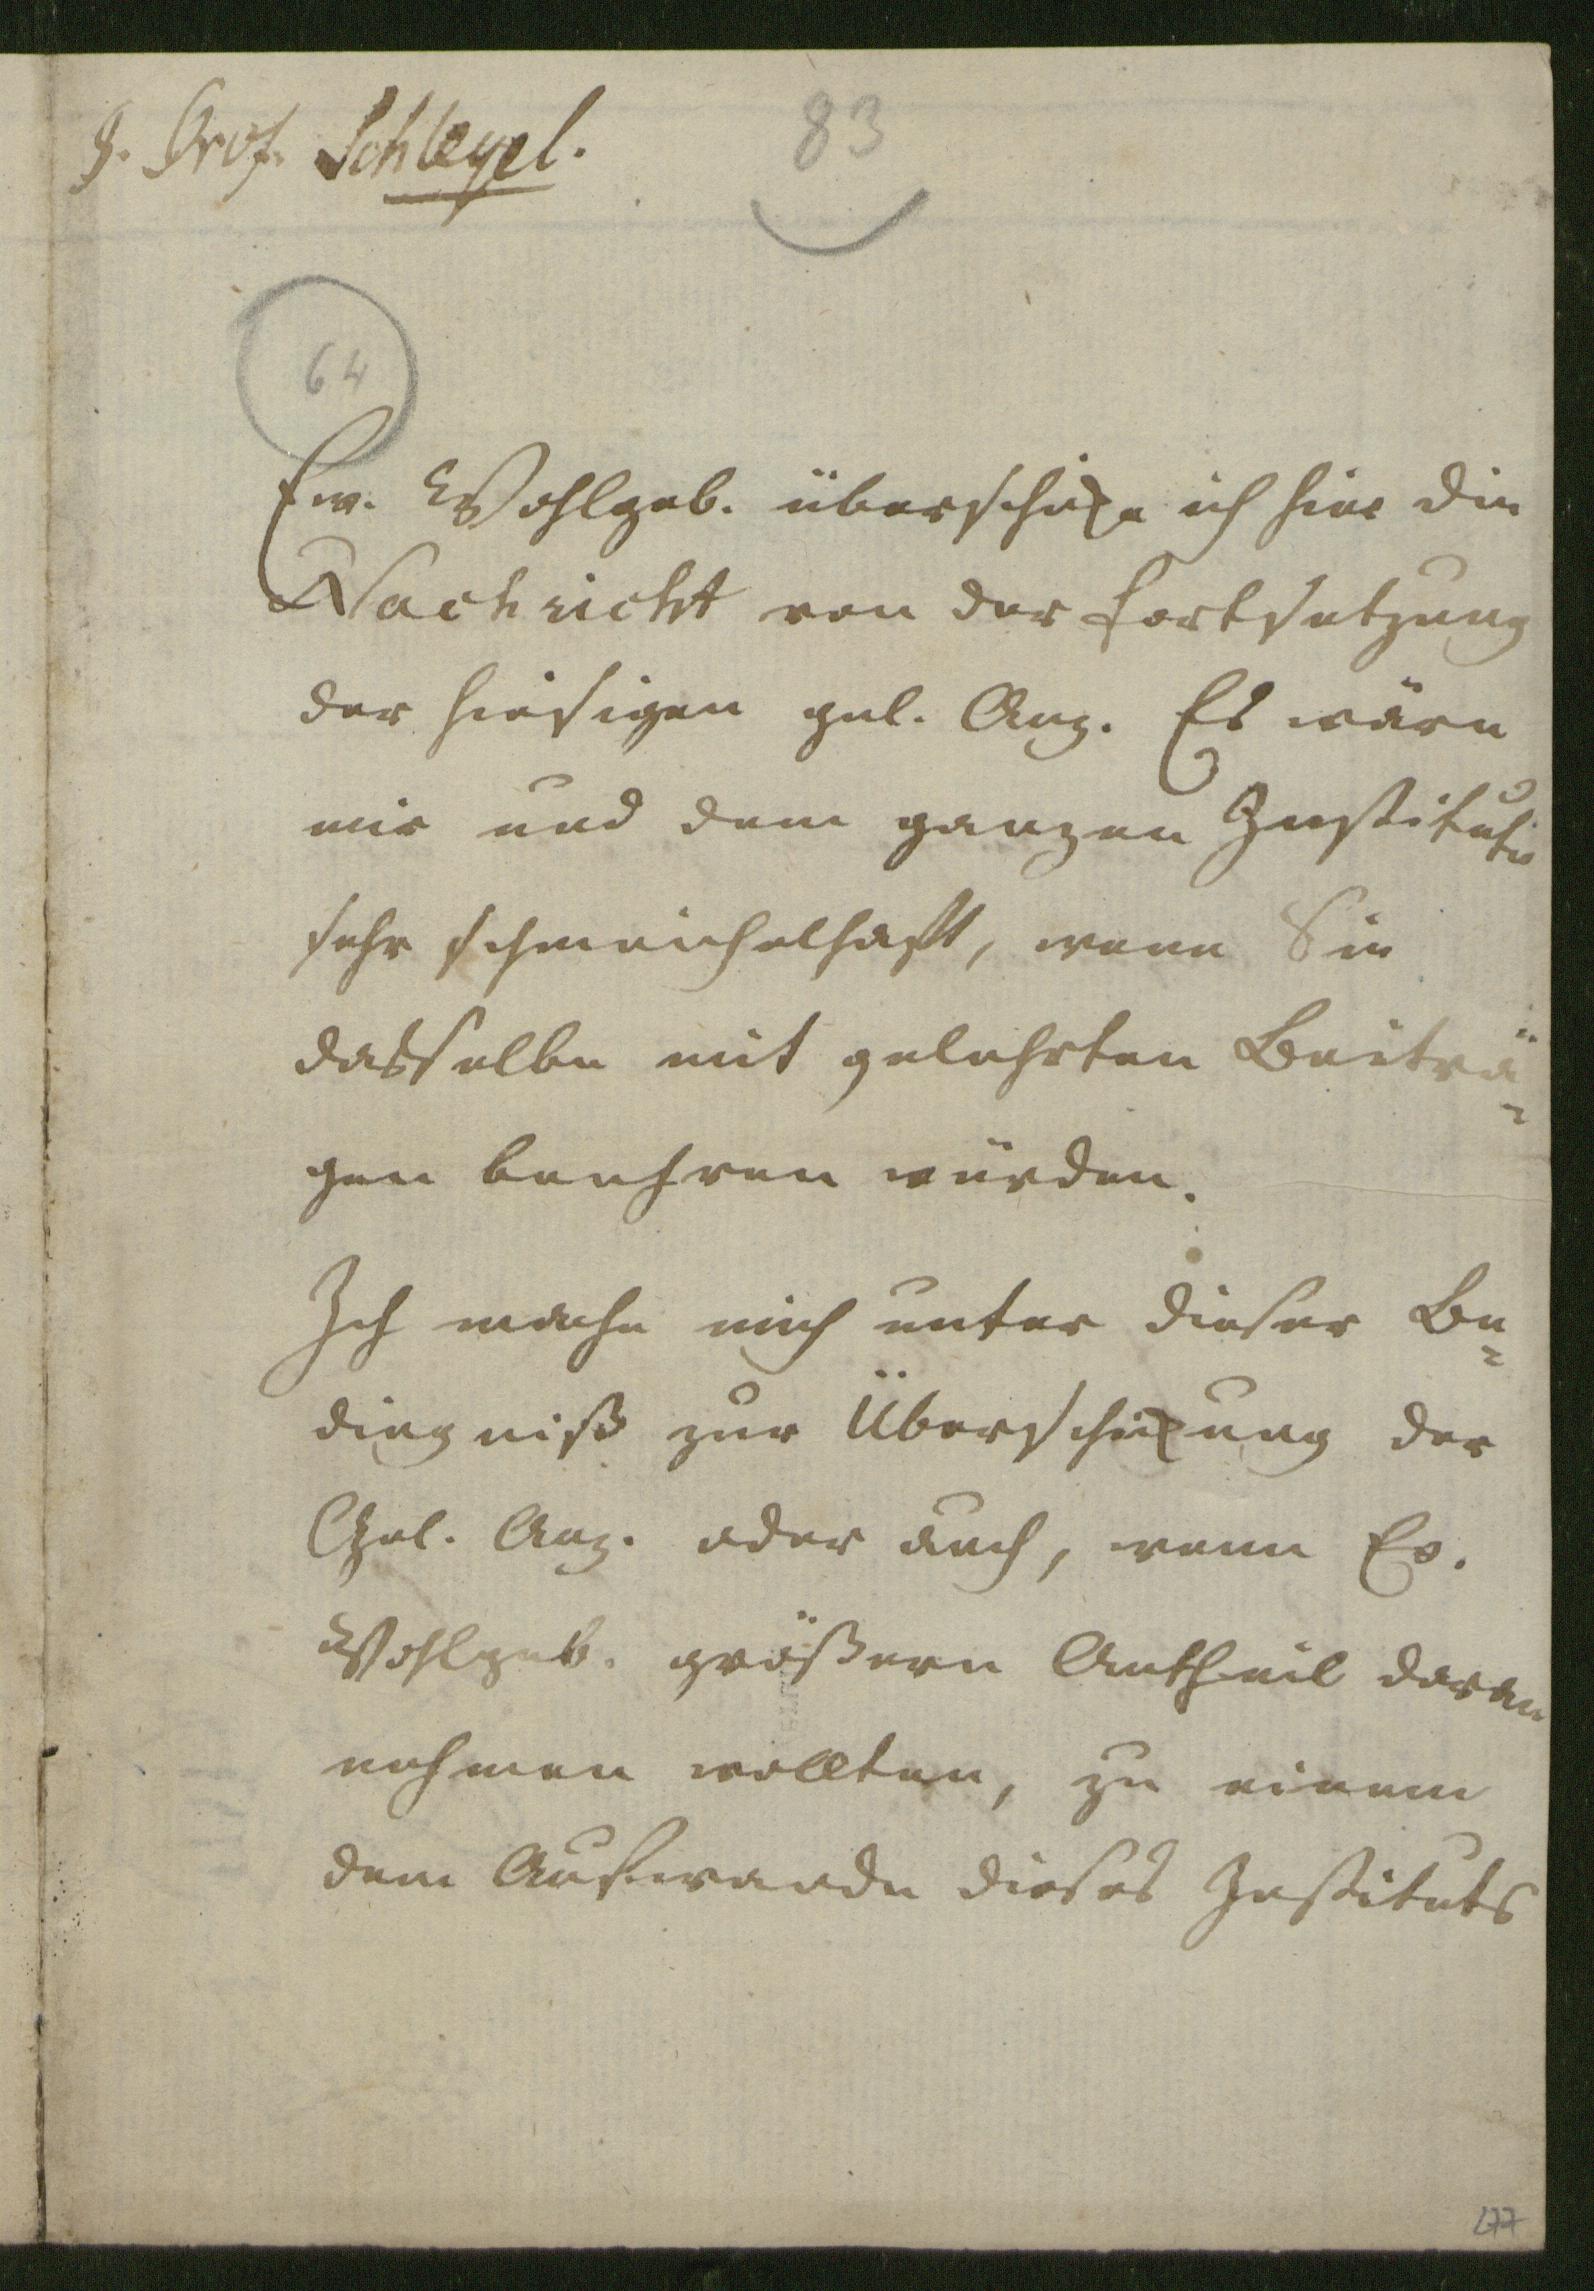 H. Prof. Schlegel.
83
64
Ew. Wohlgeb. überschike ich hier die
Nachricht von der Fortsetzung
der hiesigen gel. Anz. Es wäre
mir und dem ganzen Institute
sehr schmeichelhaft, wenn Sie
dasselbe mit gelehrten Beiträ-
gen beehren würden.
Ich mache mich unter dieser Be-
dingniß zur Überschikung der
Gel. Anz. oder auch, wenn Ew.
Wohlgeb. größern Antheil daran
nehmen wollten, zu einem
dem Aufwande dieses Instituts
177